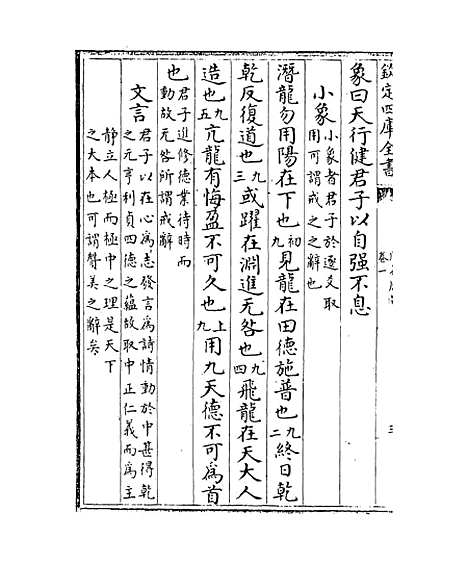 欽定四庫全書
卷一
象曰天行健君子以自强不息
小象小象者君子於逐爻取用可謂戒之之辭也
潛龍勿用陽在下也初九見龍在田德施普也九二終日乾
乾反復道也九三或躍在淵進无咎也九四飛龍在天大人
造也九五亢龍有悔盈不可久也上九用九天德不可為首
也君子進修德業待時而動故无咎所謂戒辭
文言君子以在心為志發言為詩情動於中甚得乾之元亨利貞四德之蘊故取中正仁義而為主
静立人極而極中之理是天下之大本也可謂贊美之辭矣